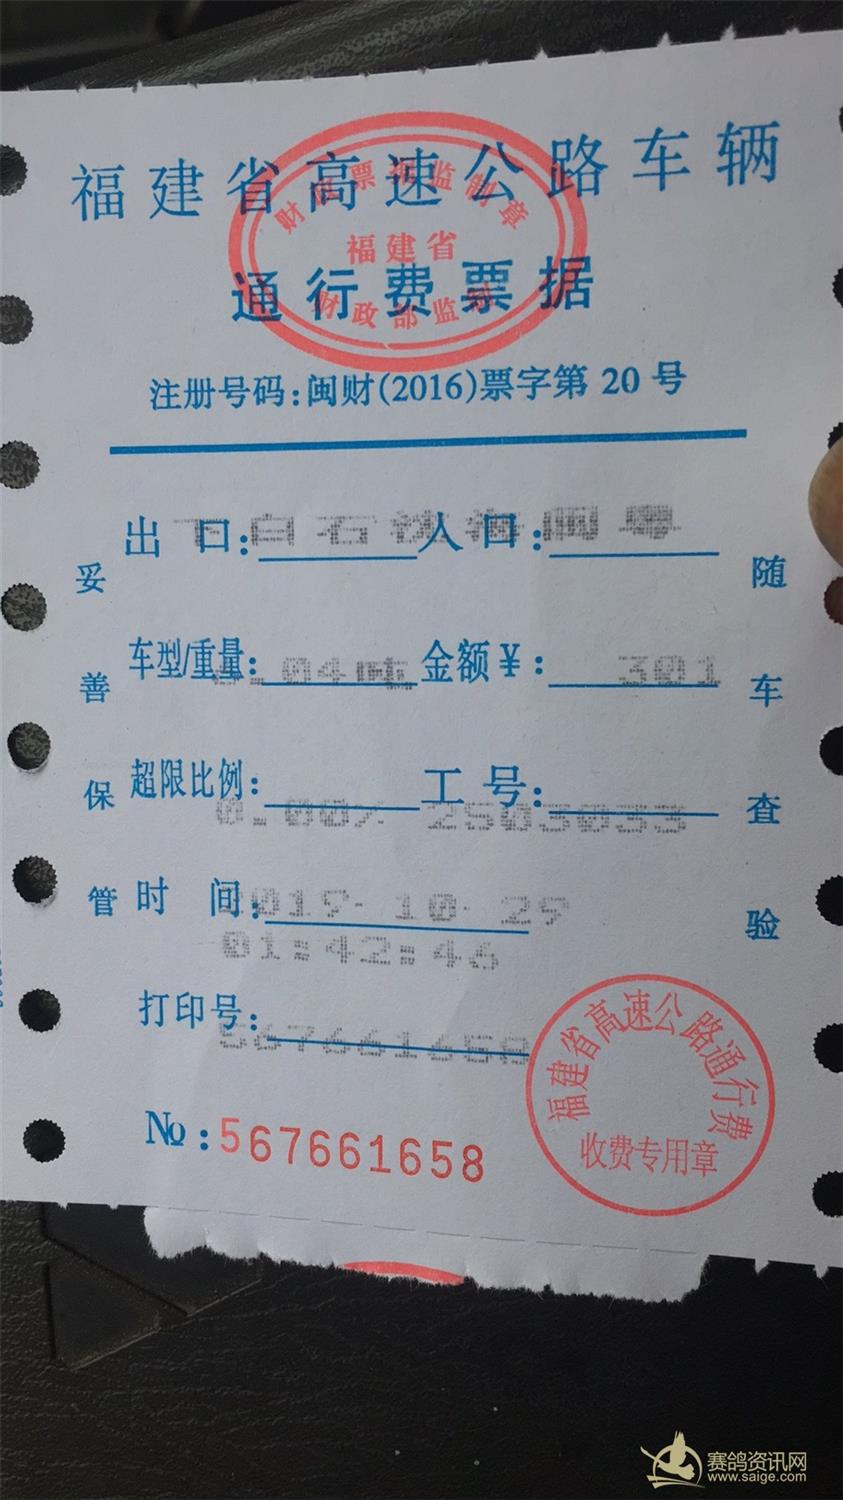 福建省高速公路车辆
通行费票据
财政票据监制章
福建省
财政部监制
注册号码:闽财(2016)票字第 20 号
出 口:下白石 入 口:沈海闽粤
车型/重量: .04吨 金额¥: 301
超限比例: 0.00% 工 号: 2503033
时 间: 2019-10-29
01:42:46
打印号: 567661658
№:567661658
妥善保管
随车查验
福建省高速公路通行费
收费专用章
赛鸽资讯网
www.saige.com